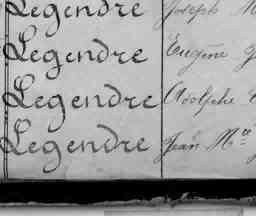 Legendre Joseph
Legendre Eugène
Legendre Adolphe
Legendre Jean